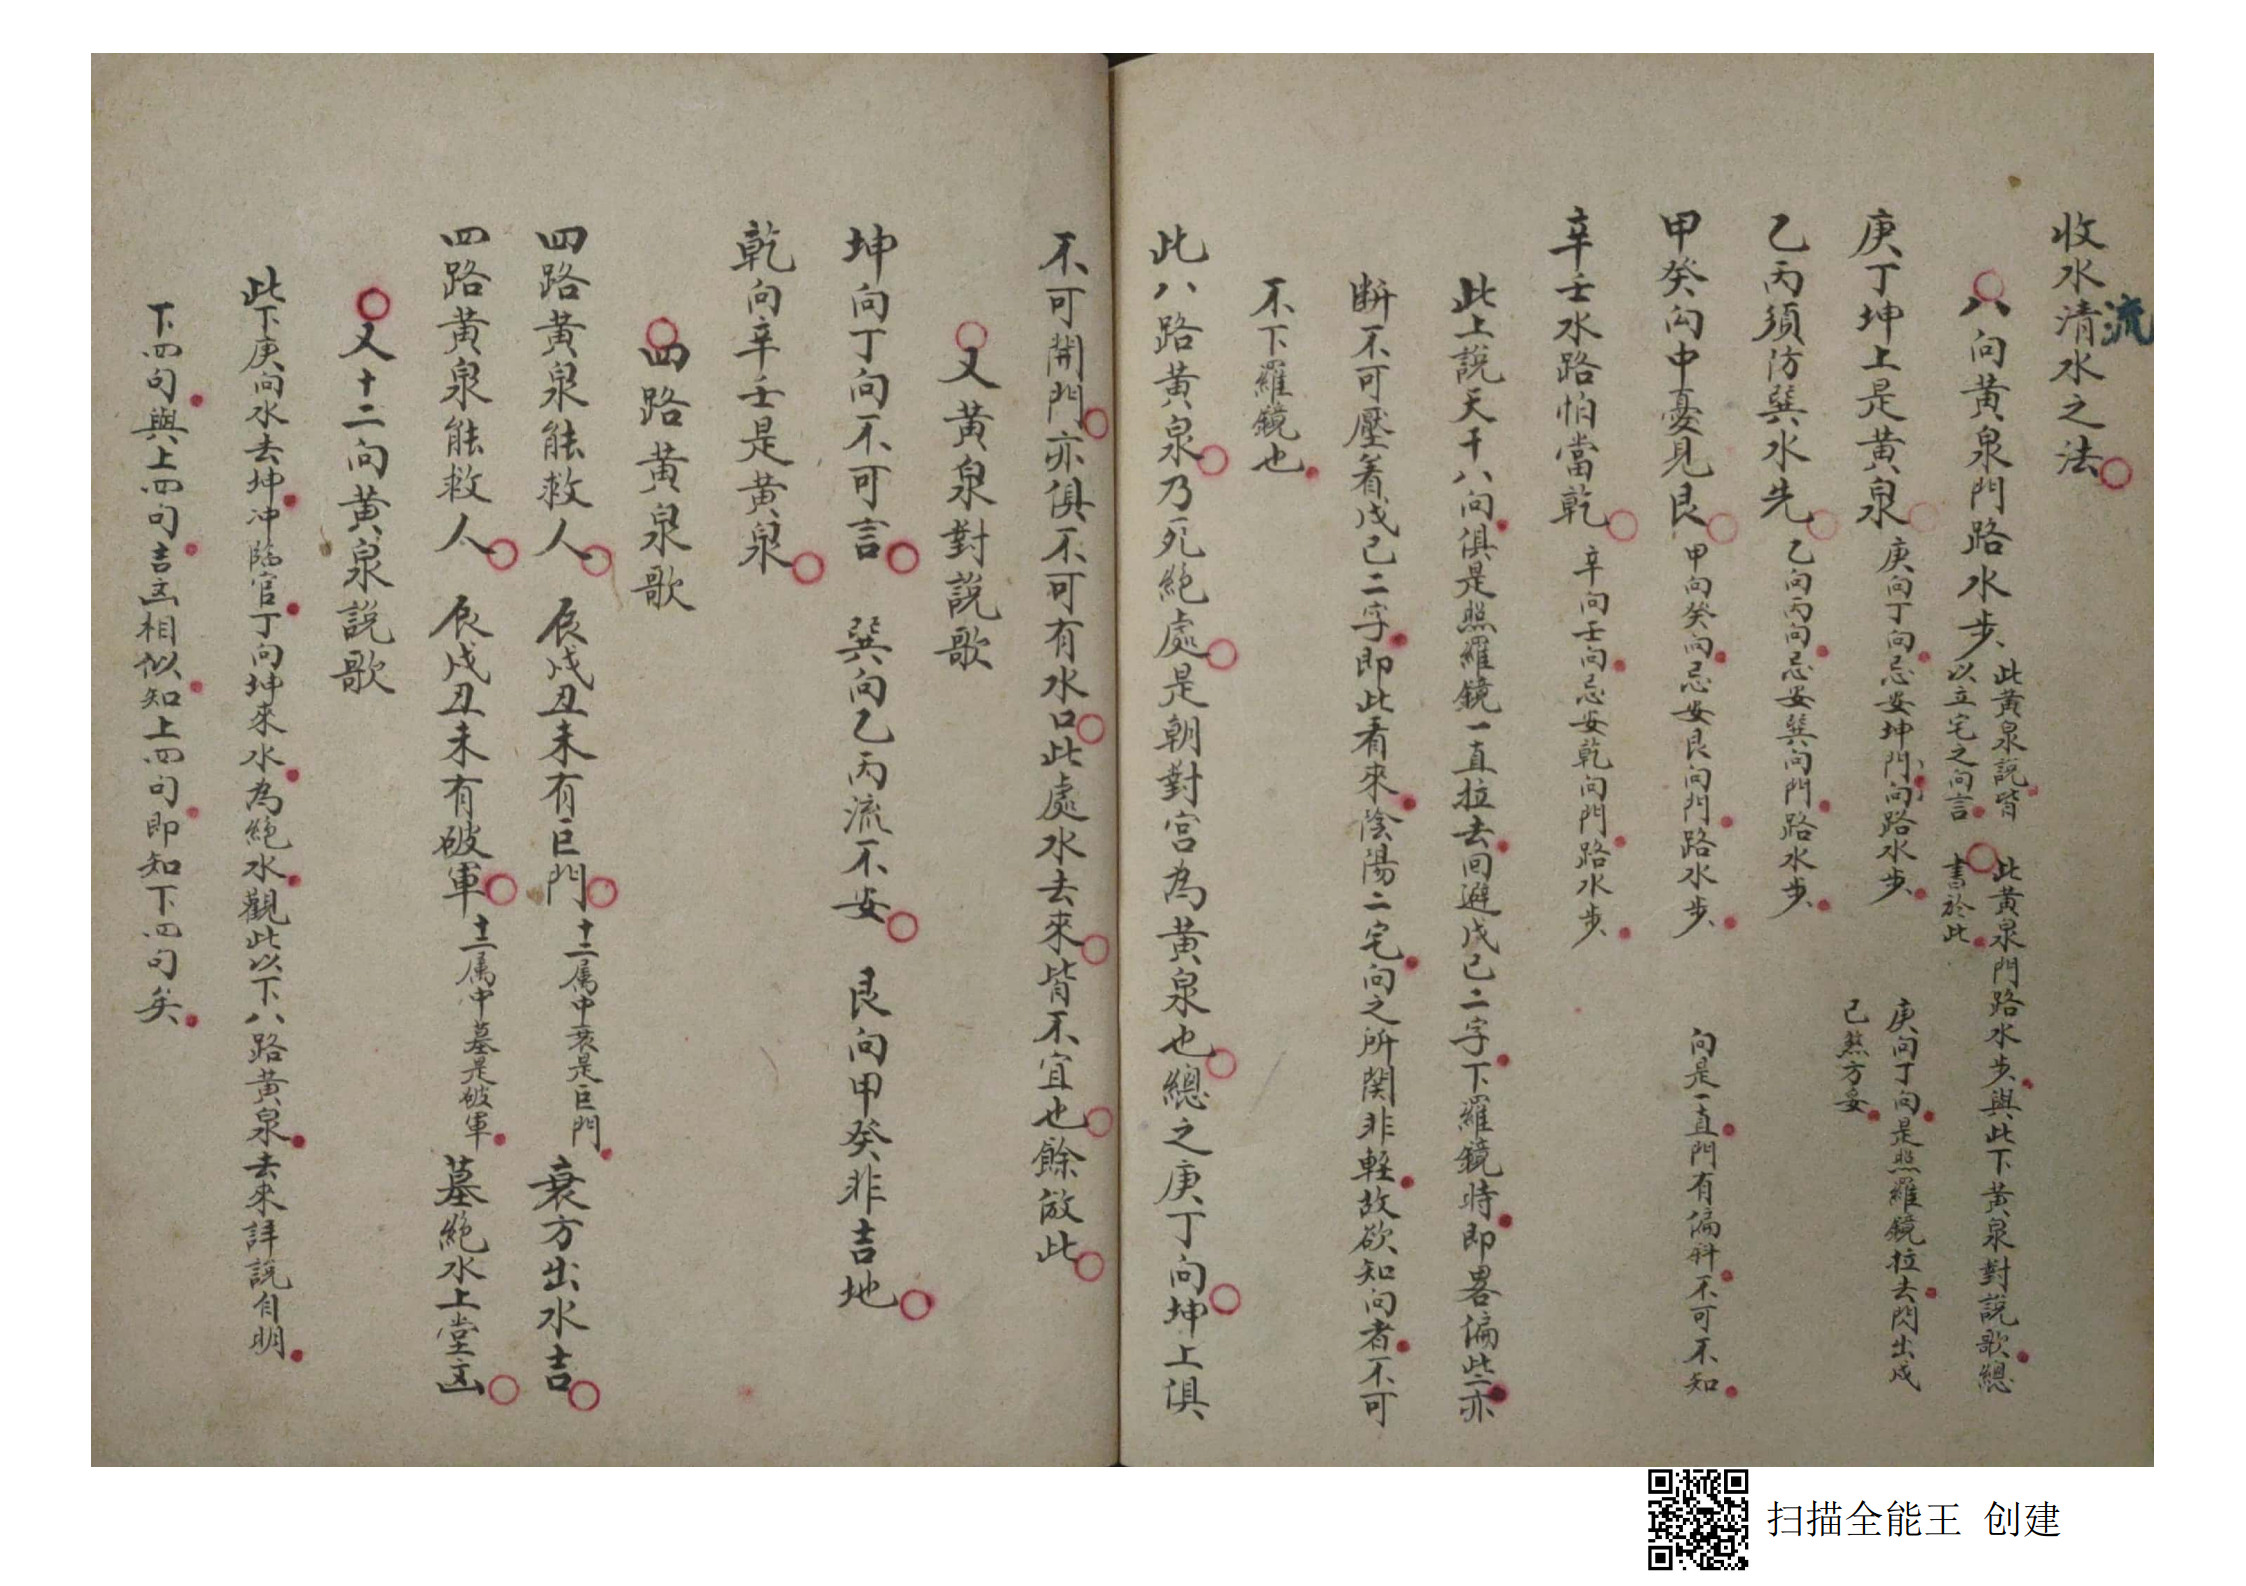 收水清水之法
流
八向黄泉門路水步
此黄泉説皆
以立宅之向言
此黄泉門路水步與此下黄泉對説歌總
書於此
庚丁坤上是黄泉
庚向丁向忌安坤門向路水步
庚向丁向是照羅鏡拉去閃出戊
己煞方妥
乙丙須防巽水先
乙向丙向忌安巽向門路水步
甲癸向中憂見艮
甲向癸向忌安艮向門路水步
向是一直門有偏斜不可不知
辛壬水路怕當乾
辛向壬向忌安乾向門路水步
此上說天干八向俱是照羅鏡一直拉去回避戊己二字下羅鏡時即畧偏些亦
断不可壓着戊己二字即此看來陰陽二宅向之所関非輕故欲知向者不可
不下羅鏡也
此八路黄泉乃死絶處是朝對宫為黄泉也總之庚丁向坤上俱
不可開門亦俱不可有水口此處水去來皆不宜也餘倣此
又黄泉對説歌
坤向丁向不可言 巽向乙丙流不安 艮向甲癸非吉地
乾向辛壬是黄泉
四路黄泉歌
四路黄泉能救人 辰戌丑未有巨門 十二属中衰是巨門 衰方出水吉
四路黄泉能救人 辰戌丑未有破軍 十二属中墓是破軍 墓絶水上堂凶
又十二向黄泉説歌
此下庚向水去坤冲臨官丁向坤來水為絶水觀此以下八路黄泉去來詳説自明
下四句與上四句吉凶相似知上四句即知下四句矣
扫描全能王 创建